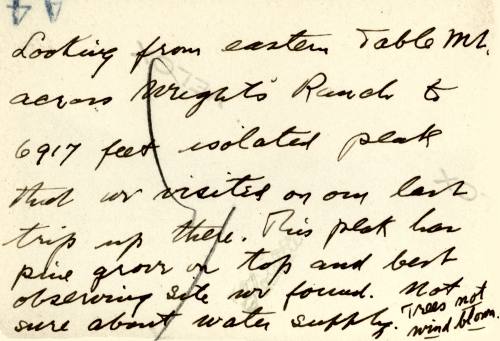 Looking from eastern Table Mt.
across Wrights Ranch to
6917 feet isolated peak
that we visited on our last
trip up there. This peak has
pine grove on top and best
observing site we found. Not
sure about water supply. Trees not
wind blown.